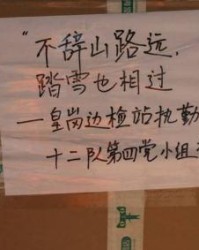 "不辞山路远,
踏雪也相过
—皇岗边检站执勤
十二队第四党小组